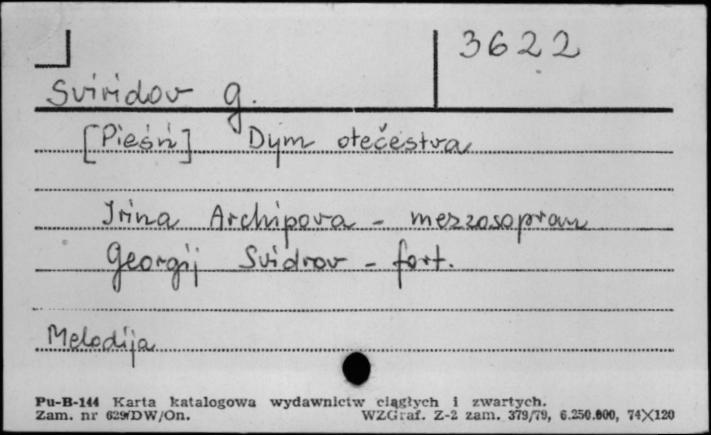 3622
Sviridov G.
[Pieśń] Dym otečestva
Irina Archipova - mezzosopran
Georgij Svidrov - fort.
Melodija
Pu-B-144 Karta katalogowa wydawnictw ciągłych i zwartych.
Zam. nr 629/DW/On. WZGraf. Z-2 zam. 379/79, 6.250.000, 74X120